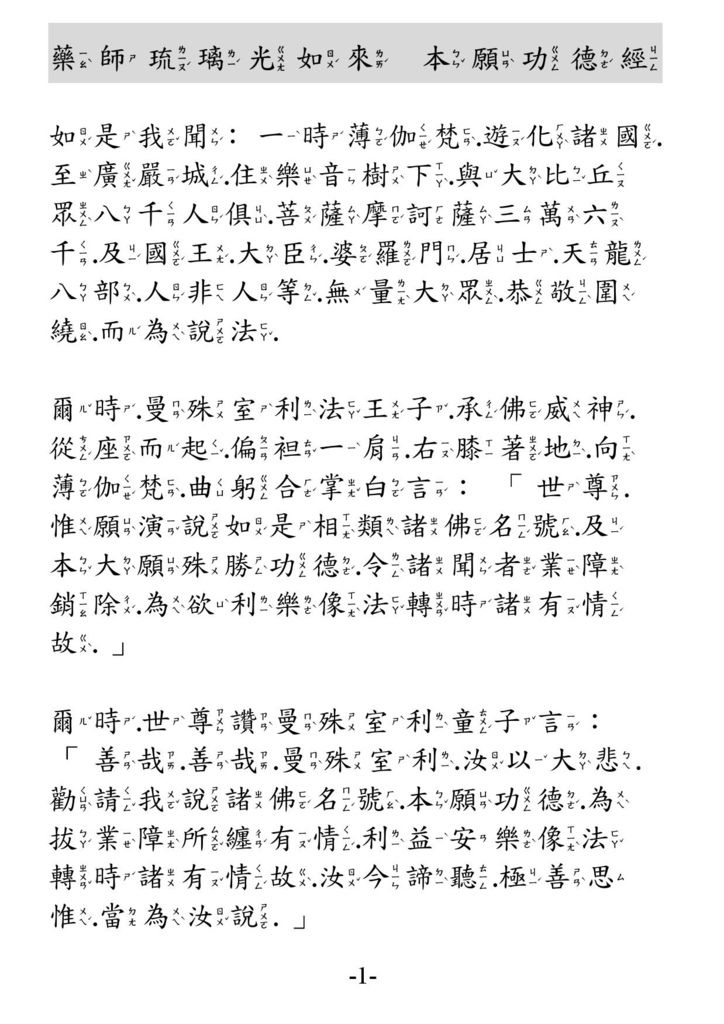 藥師琉璃光如來　本願功德經
如是我聞：一時薄伽梵.遊化諸國.
至廣嚴城.住樂音樹下.與大比丘
眾八千人俱.菩薩摩訶薩三萬六
千.及國王.大臣.婆羅門.居士.天龍
八部.人非人等.無量大眾.恭敬圍
繞.而為說法.
爾時.曼殊室利法王子.承佛威神.
從座而起.偏袒一肩.右膝著地.向
薄伽梵.曲躬合掌白言：「世尊.
惟願演說如是相類諸佛名號.及
本大願殊勝功德.令諸聞者業障
銷除.為欲利樂像法轉時諸有情
故.」
爾時.世尊讚曼殊室利童子言：
「善哉.善哉.曼殊室利.汝以大悲.
勸請我說諸佛名號.本願功德.為
拔業障所纏有情.利益安樂像法
轉時諸有情故.汝今諦聽.極善思
惟.當為汝說.」
-1-